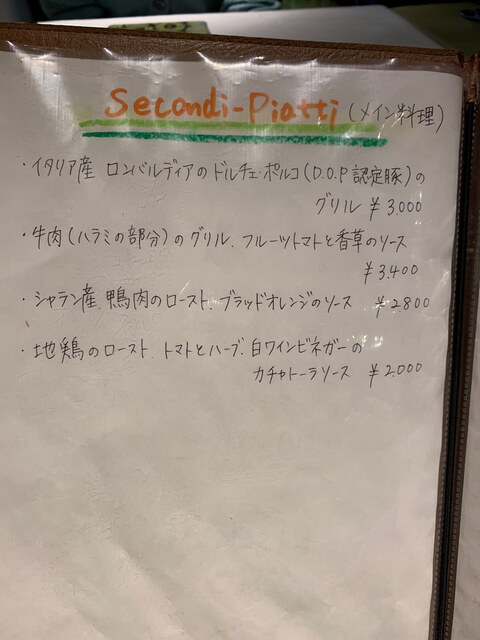 Secondi-Piatti (メイン料理)
・イタリア産 ロンバルディアのドルチェ・ポルコ(D.O.P認定豚)の
グリル ¥3,000
・牛肉(ハラミの部分)のグリル、フルーツトマトと香草のソース
¥3,400
・シャラン産、鴨肉のロースト、ブラッドオレンジのソース ¥2,800
・地鶏のロースト、トマトとハーブ、白ワインビネガーの
カチャトーラソース ¥2,000